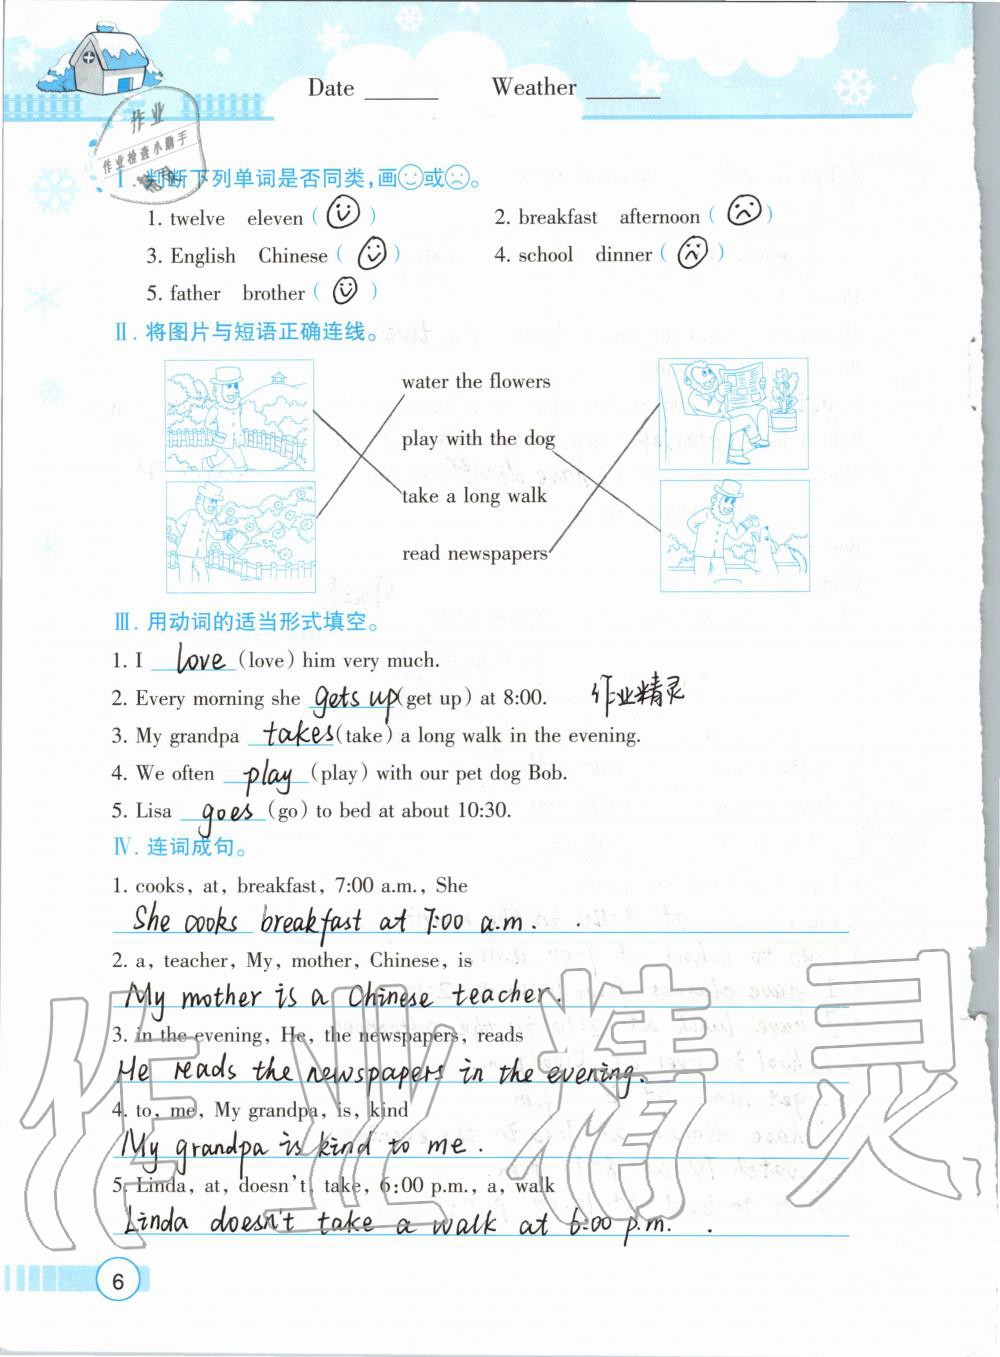 Date ______ Weather ______
作业
作业检查小助手
Ⅰ. 判断下列单词是否同类,画☺或☹。
1. twelve eleven (☺) 2. breakfast afternoon (☹)
3. English Chinese (☺) 4. school dinner (☹)
5. father brother (☺)
Ⅱ. 将图片与短语正确连线。
water the flowers
play with the dog
take a long walk
read newspapers
Ⅲ. 用动词的适当形式填空。
1. I love (love) him very much.
2. Every morning she gets up (get up) at 8:00. 作业精灵
3. My grandpa takes (take) a long walk in the evening.
4. We often play (play) with our pet dog Bob.
5. Lisa goes (go) to bed at about 10:30.
Ⅳ. 连词成句。
1. cooks, at, breakfast, 7:00 a.m., She
She cooks breakfast at 7:00 a.m. .
2. a, teacher, My, mother, Chinese, is
My mother is a Chinese teacher.
3. in the evening, He, the newspapers, reads
He reads the newspapers in the evening.
4. to, me, My grandpa, is, kind
My grandpa is kind to me.
5. Linda, at, doesn't, take, 6:00 p.m., a, walk
Linda doesn't take a walk at 6:00 p.m. .
作业精灵
6